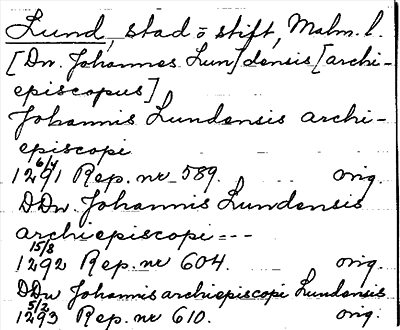 Lund, stad o stift, Malm. l.
[Dn. Johannes Lun]densis [archi-
episcopus]
Johannis Lundensis archi-
episcopi
1291 6/4 Rep. nr 589. orig.
DDn. Johannis Lundensis
archiepiscopi ---
1292 15/8 Rep. nr 604. orig.
DDn Johannis archiepiscopi Lundensis
1293 5/2 Rep. nr 610. orig.